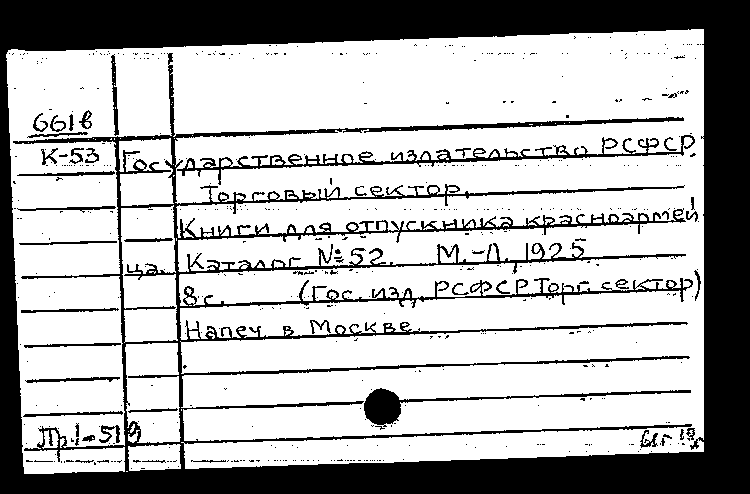 661в
К-53 Государственное издательство РСФСР.
Торговый сектор.
Книги для отпускника красноармей-
ца. Каталог №52. М.-Л., 1925
8 с. (Гос. изд. РСФСР Торг. сектор)
Напеч. в Москве.
Пр.1-519